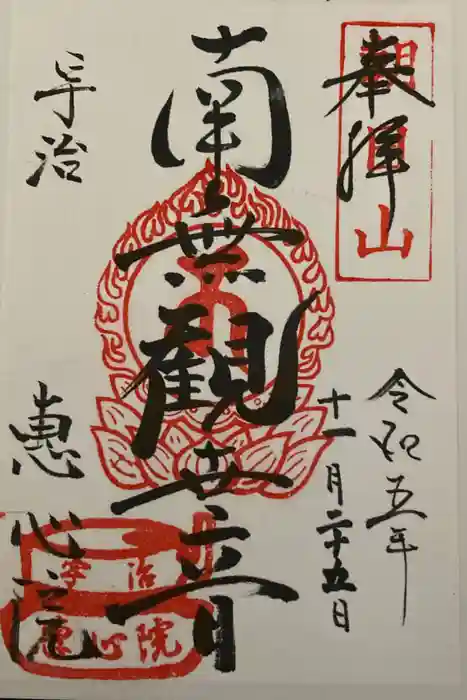 奉拝
令和五年
十一月二十五日
南無觀世音
宇治
恵心院
朝日山
宇治
恵心院